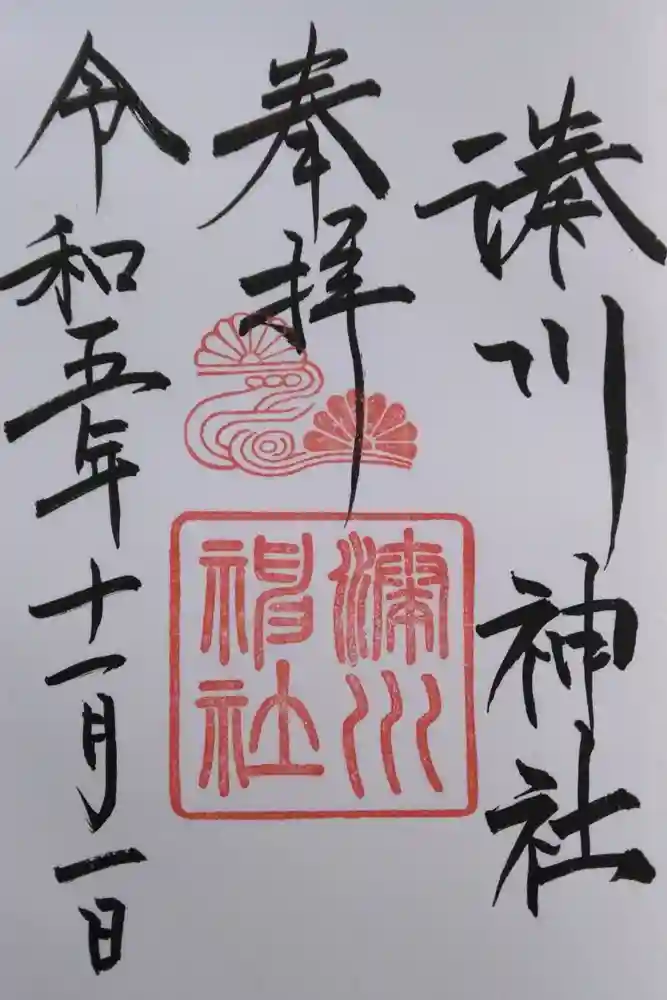 湊川神社
奉拝
湊川
神社
令和五年十一月一日